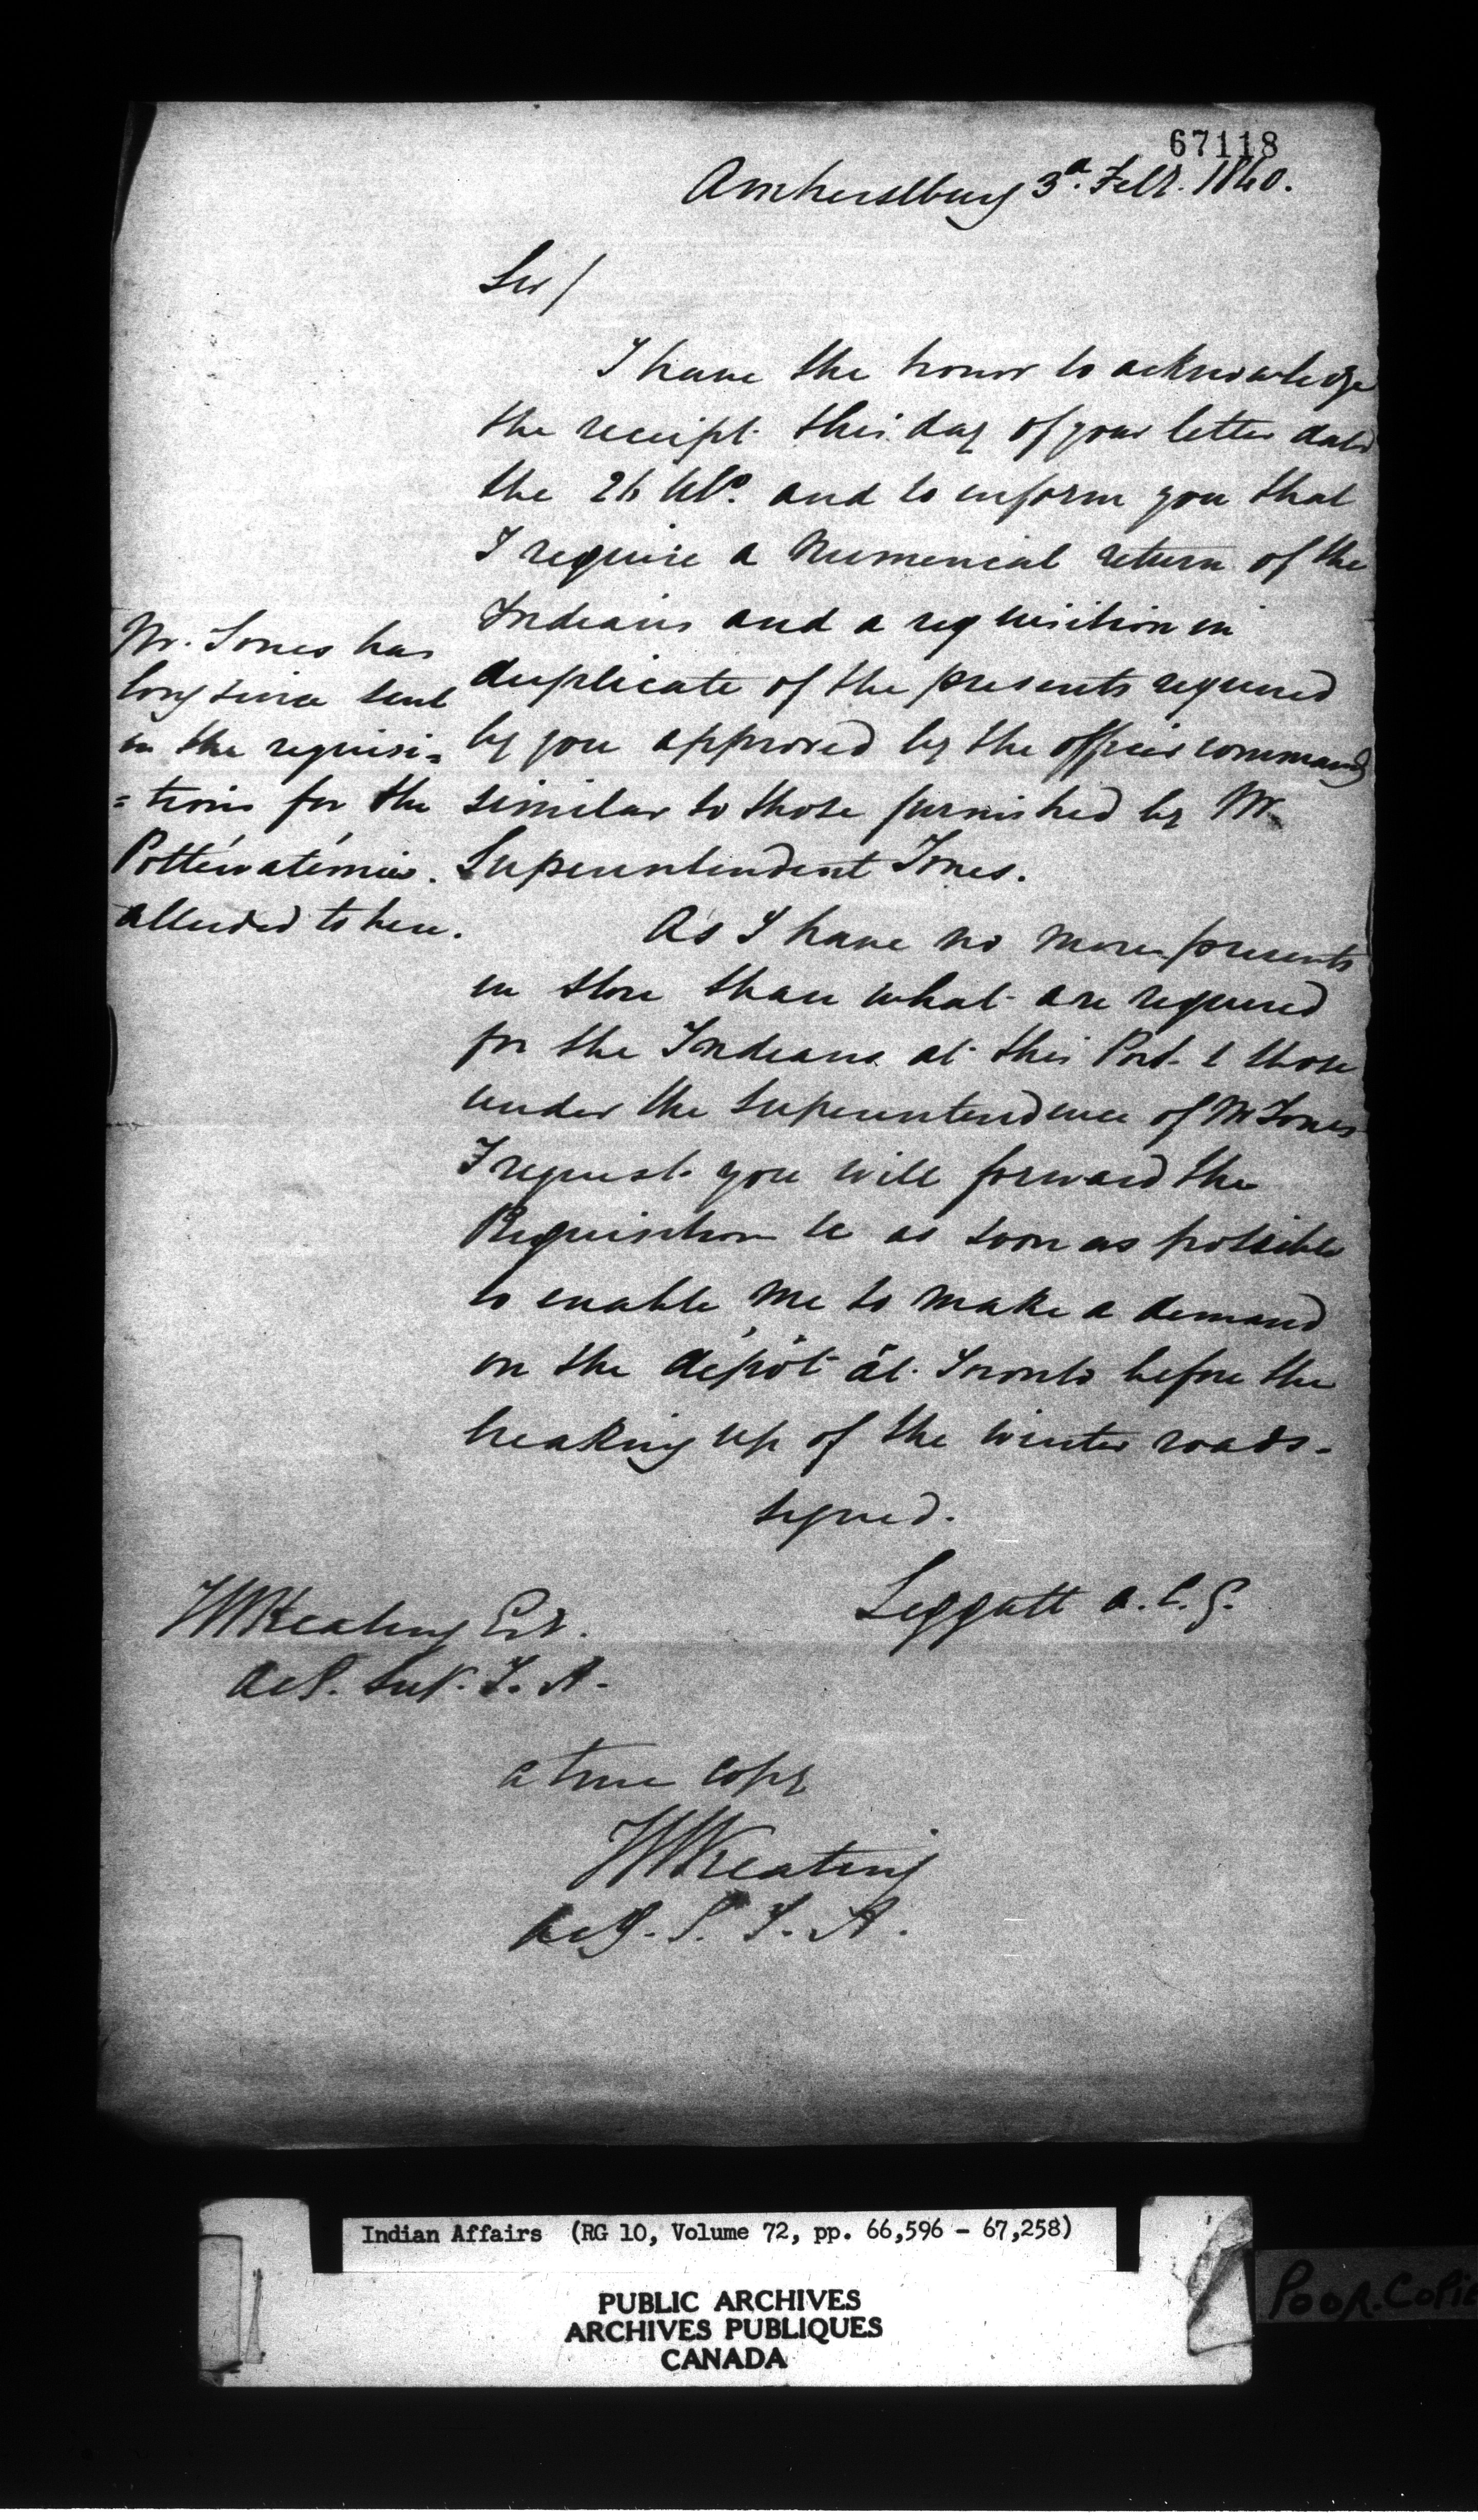 67118
Amherstburg 3d. Feby. 1840.
Sir/
I have the honor to acknowledge
the receipt this day of your letter dated
the 26 Ulto. and to inform you that
I require a Numerical return of the
Indians and a requisition in
duplicate of the presents required
by you approved by the officer commandg
similar to those furnished by Mr.
Superintendent Jones.
Mr. Jones has
long since sent
in the requisi=
=tions for the
Pottéwatémies.
alluded to here.
As I have no more presents
in store than what are required
for the Indians at this Post & those
under the Superintendence of Mr Jones
I request you will forward the
Requisition &c as soon as possible
to enable me to make a demand
on the depôt at Toronto before the
breaking up of the winter roads.
signed.
Leggatt A.C.G.
JWKeating Esr.
Act. Sup. I. A.
a true copy
JWKeating
Act. S. I. A.
Indian Affairs (RG 10, Volume 72, pp. 66,596 - 67,258)
PUBLIC ARCHIVES
ARCHIVES PUBLIQUES
CANADA
POOR. COPIE